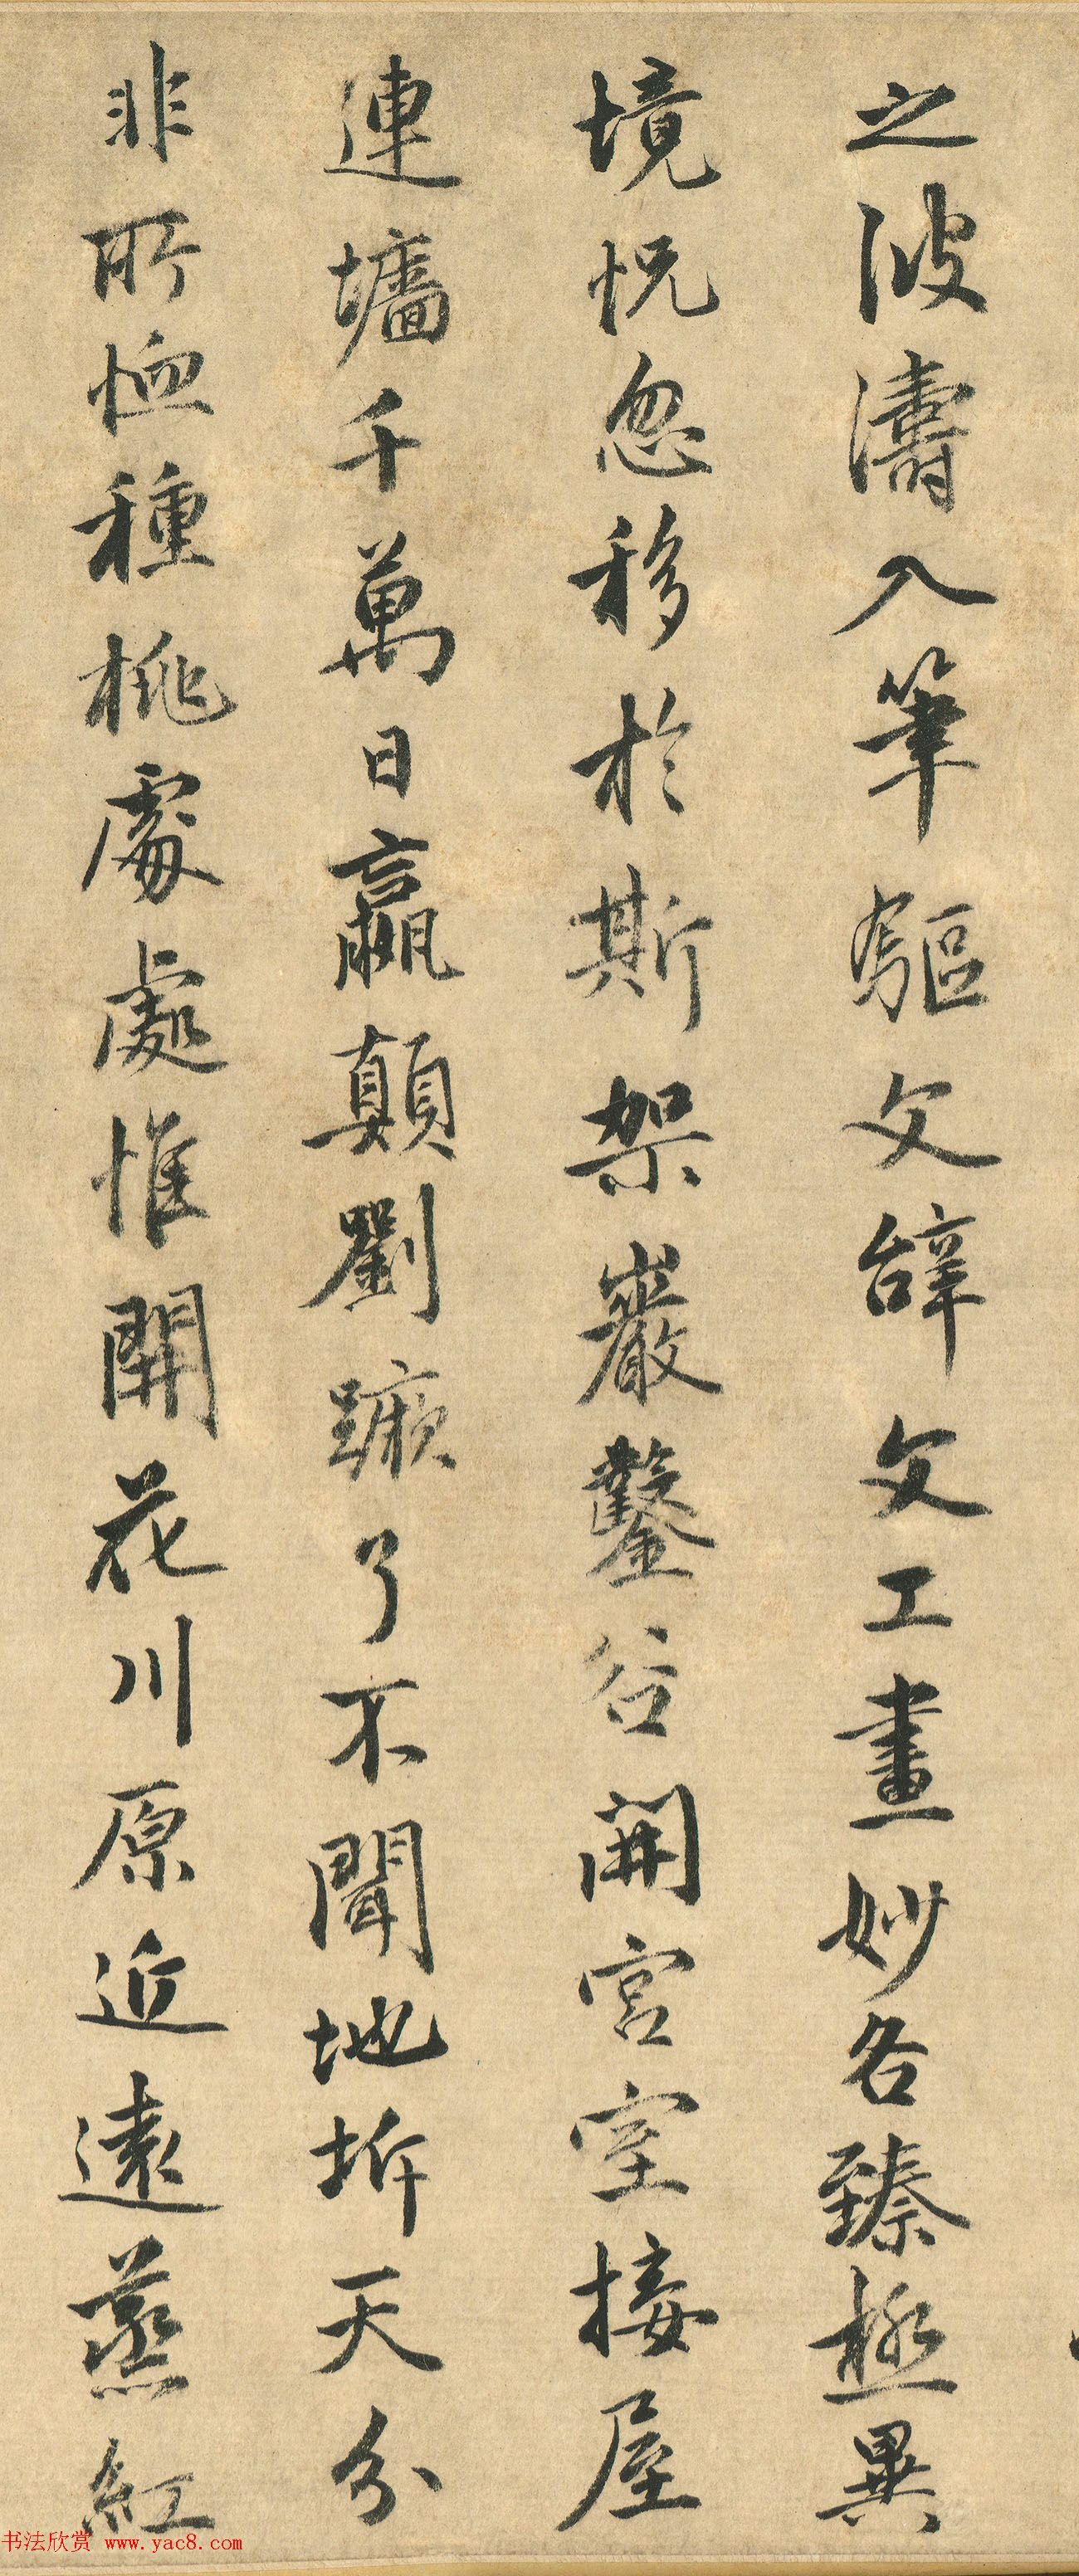 之波濤入筆驅文辭文工畫妙各臻極異
境怳忽移於斯架巖鑿谷開宮室接屋
連墻千萬日嬴顛劉蹶了不聞地坼天分
非所恤種桃處處惟開花川原近遠蒸紅
书法欣赏 www.yac8.com